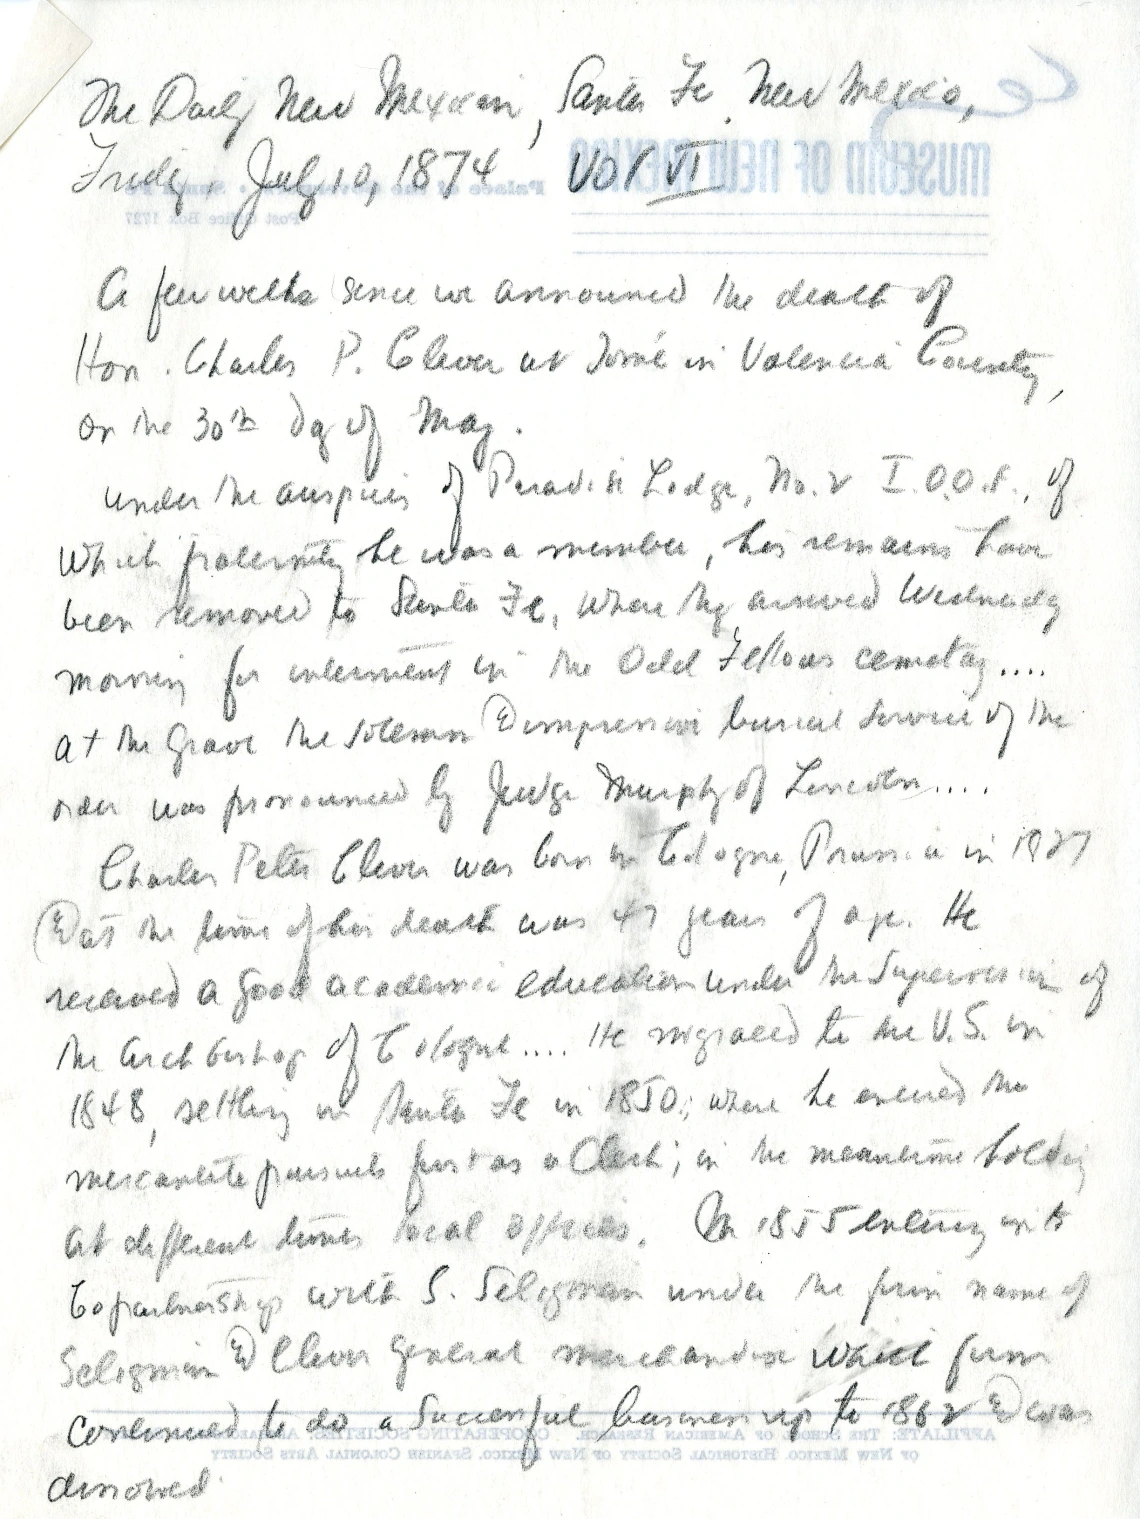 The Daily New Mexican, Santa Fe, New Mexico,
Friday, July 10, 1874 Vol VI
MUSEUM OF NEW MEXICO
Palace of the Governors
Post Office Box 1727
A few weeks since we announced the death of
Hon. Charles P. Clever at Tomé in Valencia County,
on the 30th day of May.
under the auspices of Paradise Lodge, No. 2 I.O.O.F., of
which fraternity he was a member, his remains have
been removed to Santa Fe, where they arrived Wednesday
morning for interment in the Odd Fellows cemetery....
at the grave the solemn & impressive burial service of the
order was pronounced by Judge Murphy of Lincoln....
Charles Peter Clever was born in Cologne, Prussia in 1827
& at the time of his death was 47 years of age. He
received a good academic education under the supervision of
the Archbishop of Cologne.... He migrated to the U.S. in
1848, settling in Santa Fe in 1850; where he entered the
mercantile pursuits first as a Clerk; in the meantime holding
at different times local offices. In 1855 entering into
Copartnership with S. Seligman under the firm name of
Seligman & Clever general merchandise which firm
continued to do a successful business up to 1862 & was
AFFILIATE: THE SCHOOL OF AMERICAN RESEARCH. COOPERATING SOCIETIES:
OF NEW MEXICO. HISTORICAL SOCIETY OF NEW MEXICO. SPANISH COLONIAL ARTS SOCIETY
dissolved